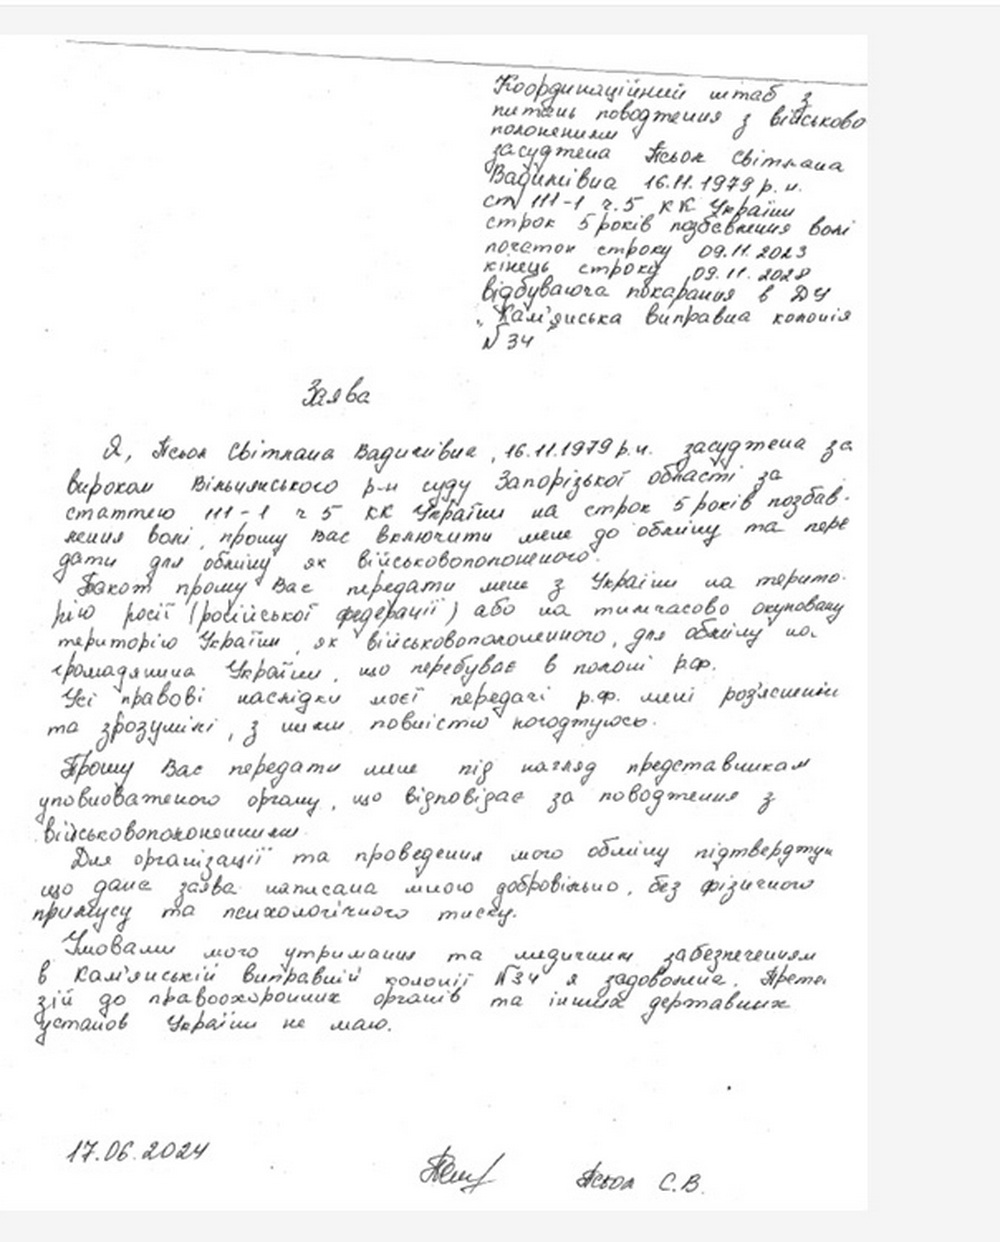 Координаційний штаб з
питань поводження з військово
полоненими
засуджена Псьол Світлана
Вадимівна 16.11.1979 р.н.
ст 111-1 ч.5 КК України
строк 5 років позбавлення волі
початок строку 09.11.2023
кінець строку 09.11.2028
відбуваюча покарання в ДУ
„Кам'янська виправна колонія
№34"
Заява
Я, Псьол Світлана Вадимівна, 16.11.1979 р.н. засуджена за
вироком Вільнянського р-н суду Запорізької області за
статтею 111-1 ч 5 КК України на строк 5 років позбав-
лення волі, прошу Вас включити мене до обміну та пере
дати для обміну як військовополоненого.
Також прошу Вас передати мене з України на терито-
рію росії (російської федерації) або на тимчасово окуповану
територію України, як військовополоненного, для обміну на
громадянина України, що перебуває в полоні р.ф.
Усі правові наслідки моєї передачі р.ф. мені роз'яснені
та зрозумілі, з ними повністю погоджуюсь.
Прошу Вас передати мене під нагляд представникам
уповноваженого органу, що відповідає за поводження з
військовополоненними.
Для організації та проведення мого обміну підтверджую
що дана заява написана мною добровільно, без фізичного
примусу та психологічного тиску.
Умовами мого утримання та медичним забезпеченням
в Кам'янській виправній колонії №34 я задоволена. Прете
зій до правоохоронних органів та інших державних
установ України не маю.
17.06.2024
Псьол С.В.